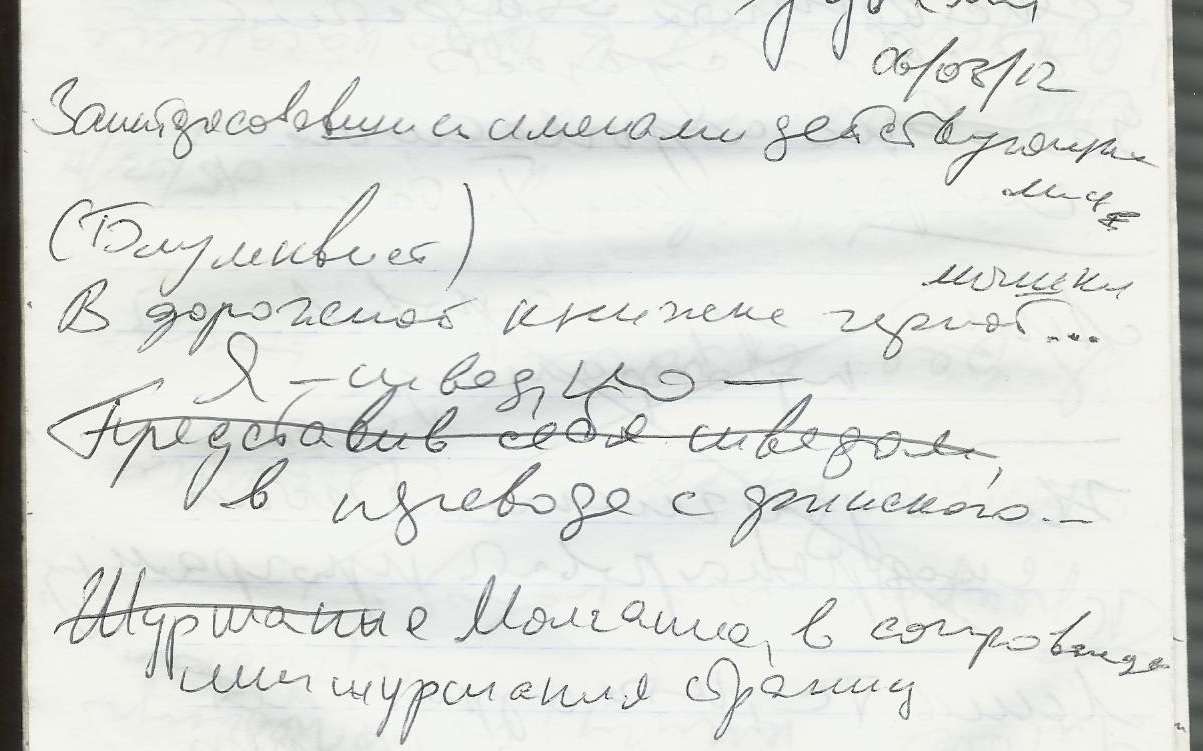 06/03/12
Заинтересовавшись именами действующих
лиц
(Блумквист)
мошки
В дорожной книжке черной...
Я – шведско –
Представив себя шведом,
в переводе с финского...
Шуршание Молчание, в сопровожде
нии шуршания страниц